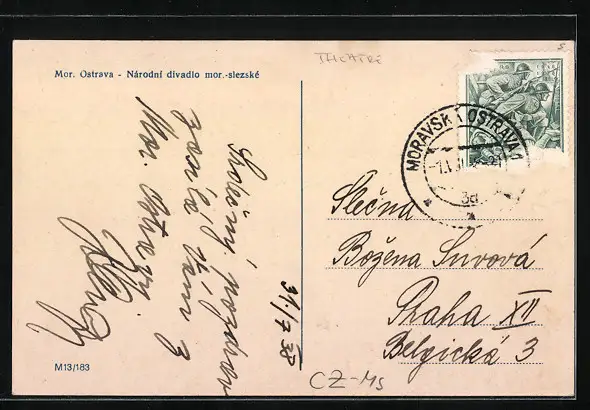 THEATRE
Mor. Ostrava - Národní divadlo mor.-slezské
Srdečný pozdrav
zasílá Vám z
Mor. Ostravy
31/7 38
M13/183
CZ-MS
MORAVSKÁ OSTRAVA 1
3d
Slečna
Božena Surová
Praha XII
Belgická 3